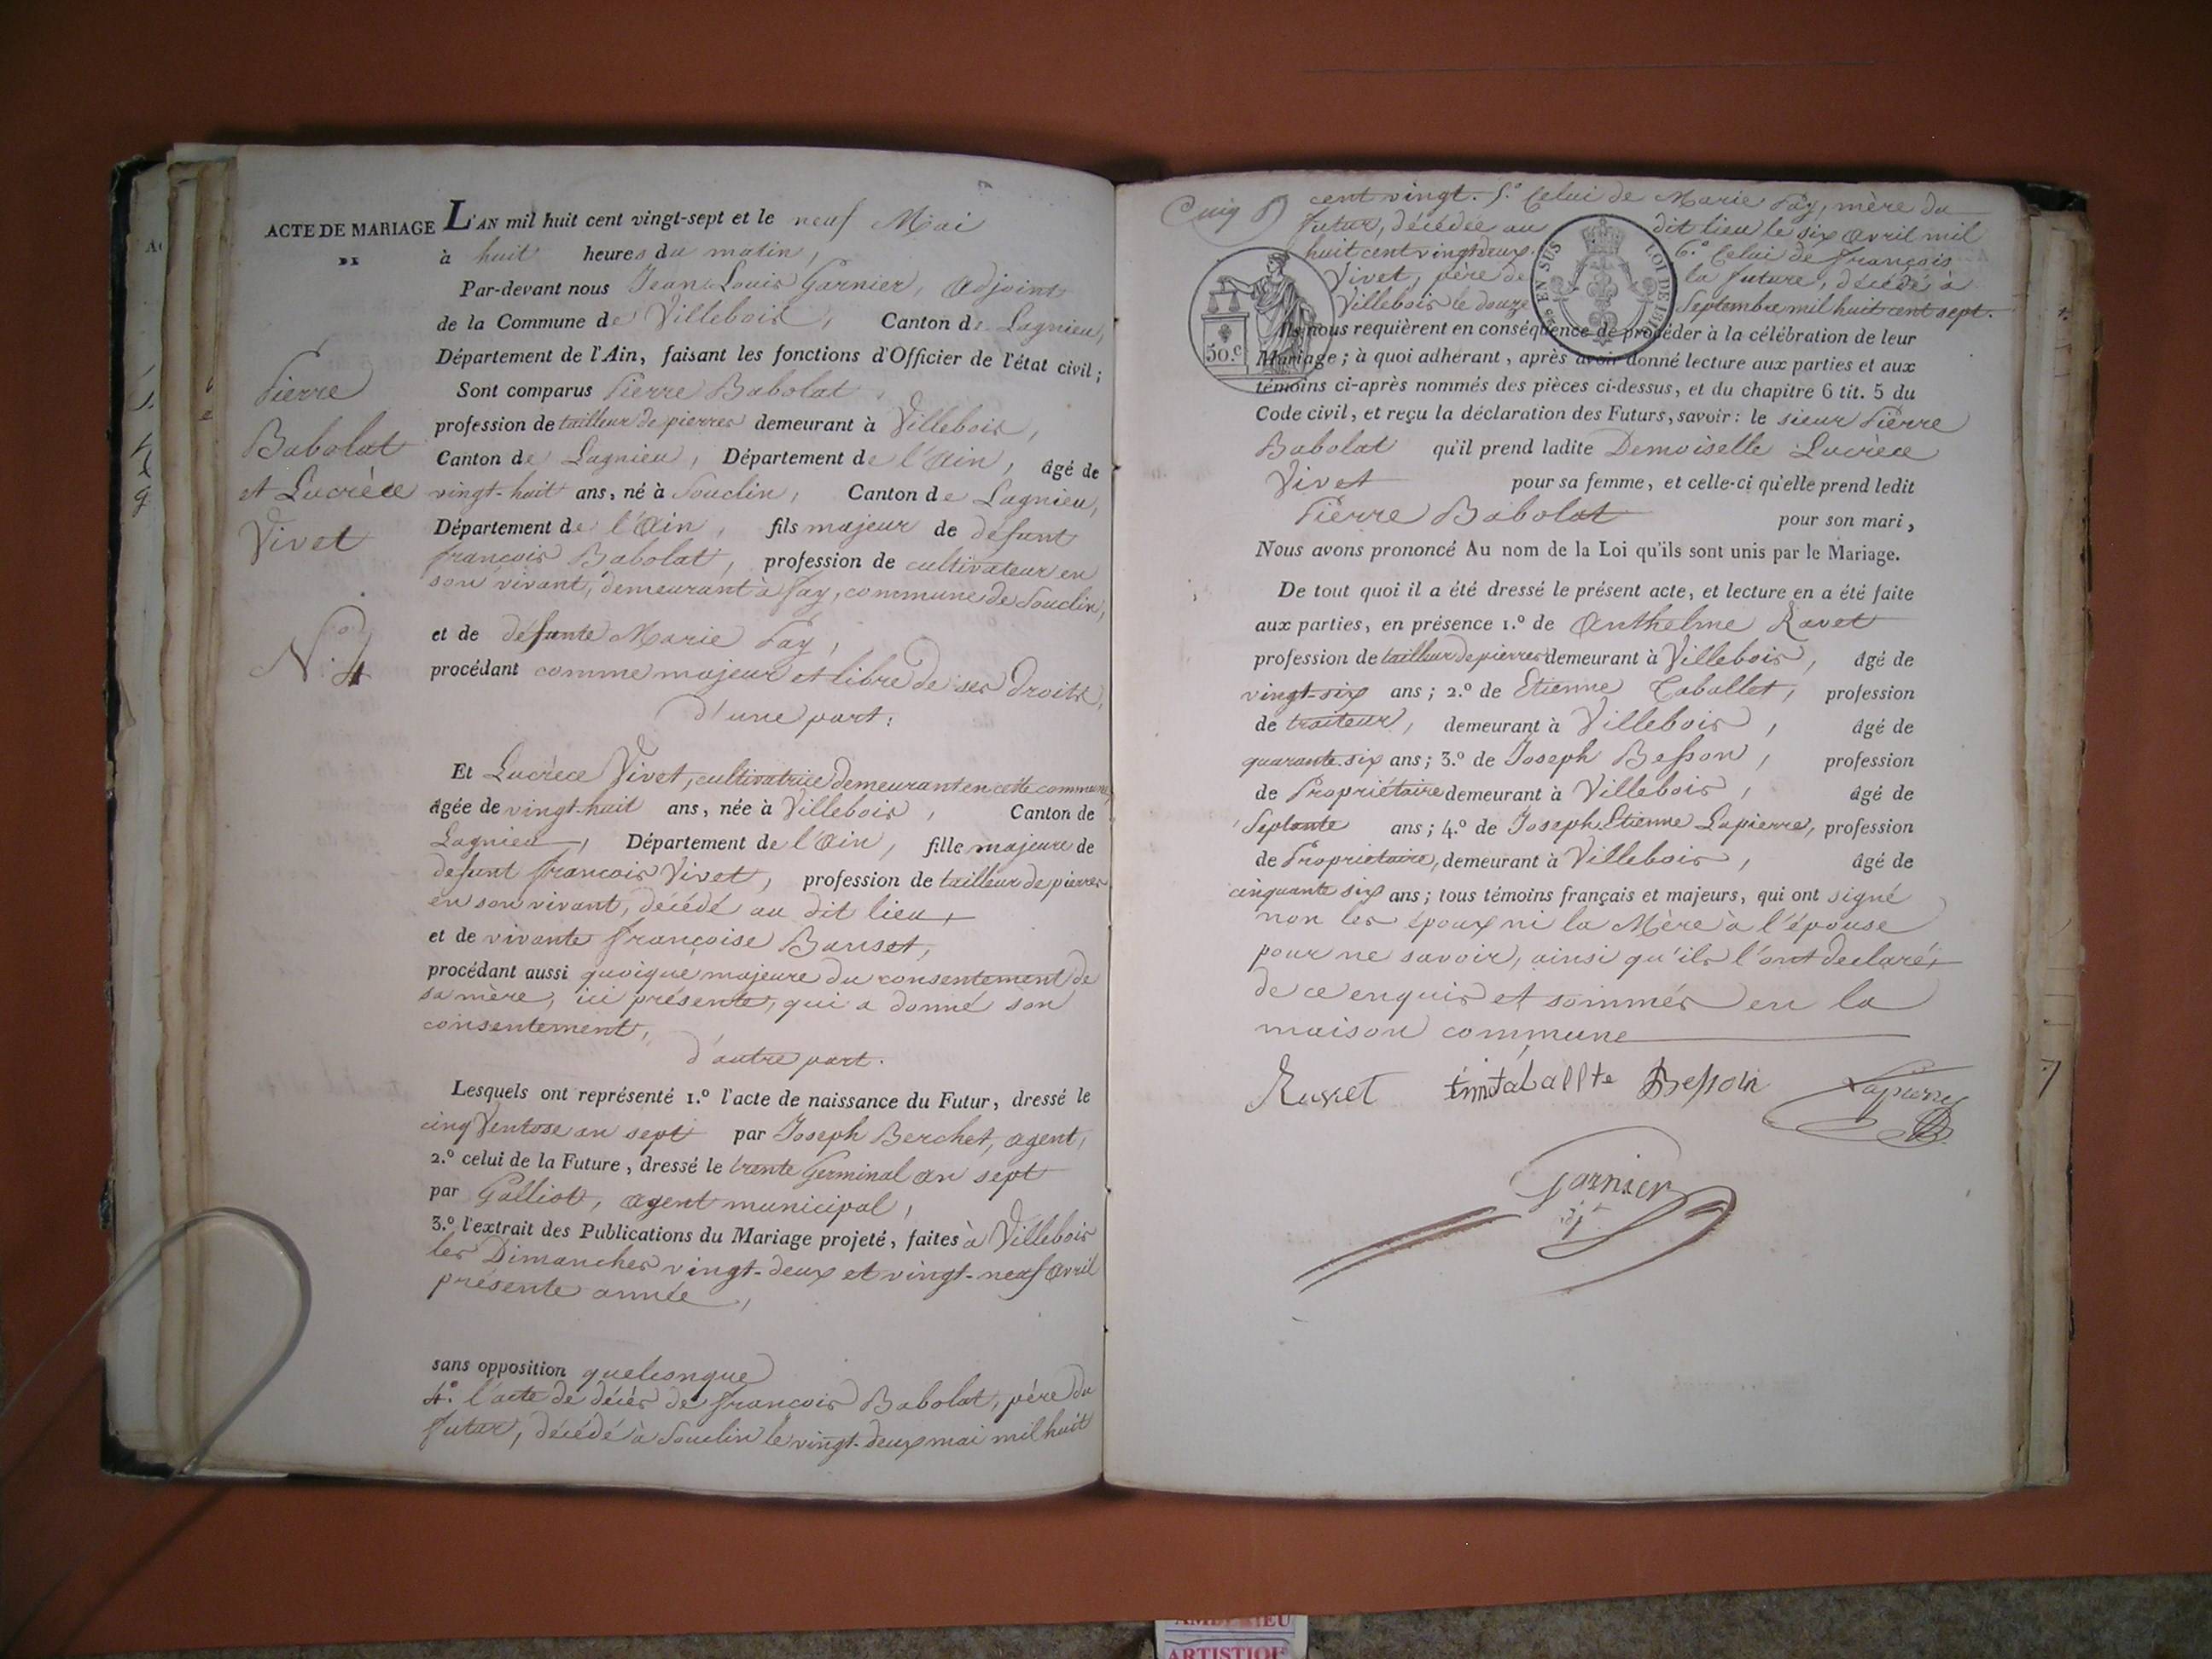 ACTE DE MARIAGE
Pierre
Babolat
et Lucrèce
Vivet
N.º 4
L'AN mil huit cent vingt-sept et le neuf Mai
à huit heures du matin,
Par-devant nous Jean Louis Garnier, Adjoint
de la Commune de Villebois, Canton de Lagnieu,
Département de l'Ain, faisant les fonctions d'Officier de l'état civil;
Sont comparus Pierre Babolat,
profession de tailleur de pierres demeurant à Villebois,
Canton de Lagnieu, Département de l'Ain, âgé de
vingt-huit ans, né à Souclin, Canton de Lagnieu,
Département de l'Ain, fils majeur de défunt
françois Babolat, profession de cultivateur en
son vivant, demeurant à fay, commune de Souclin,
et de défunte Marie Fay,
procédant comme majeur et libre de ses droits,
d'une part:
Et Lucrèce Vivet, cultivatrice demeurant en cette commune,
âgée de vingt-huit ans, née à Villebois, Canton de
Lagnieu, Département de l'Ain, fille majeure de
defunt françois Vivet, profession de tailleur de pierres
en son vivant, décédé au dit lieu,
et de vivante françoise Banset,
procédant aussi quoique majeure du consentement de
sa mère, ici présente, qui a donné son
consentement,
d'autre part.
Lesquels ont représenté 1.º l'acte de naissance du Futur, dressé le
cinq Ventose an sept par Joseph Berchet, agent,
2.º celui de la Future, dressé le trente Germinal an sept
par Galliot, agent municipal,
3.º l'extrait des Publications du Mariage projeté, faites à Villebois
les Dimanches vingt-deux et vingt-neuf avril
présente année,
sans opposition quelconque
4.º l'acte de décès de françois Babolat, père du
futur, décédé à Souclin le vingt-deux mai mil huit
cent vingt. 5.º Celui de Marie Fay, mère du
futur, décédée au dit lieu le six avril mil
huit cent vingt deux. 6.º Celui de françois
Vivet, père de la future, décédé à
Villebois le douze Septembre mil huit cent sept.
EN SUS
LOI DE
50.c
Ils nous requièrent en conséquence de procéder à la célébration de leur
Mariage; à quoi adhérant, après avoir donné lecture aux parties et aux
témoins ci-après nommés des pièces ci-dessus, et du chapitre 6 tit. 5 du
Code civil, et reçu la déclaration des Futurs, savoir: le sieur Pierre
Babolat qu'il prend ladite Demoiselle Lucrèce
Vivet pour sa femme, et celle-ci qu'elle prend ledit
Pierre Babolat pour son mari,
Nous avons prononcé Au nom de la Loi qu'ils sont unis par le Mariage.
De tout quoi il a été dressé le présent acte, et lecture en a été faite
aux parties, en présence 1.º de Anthelme Ravet
profession de tailleur de pierres demeurant à Villebois, âgé de
vingt-six ans; 2.º de Etienne Taballet, profession
de traiteur, demeurant à Villebois, âgé de
quarante-six ans; 3.º de Joseph Besson, profession
de Propriétaire demeurant à Villebois, âgé de
Septante ans; 4.º de Joseph Etienne Lapierre, profession
de Propriétaire, demeurant à Villebois, âgé de
cinquante six ans; tous témoins français et majeurs, qui ont signé
non les époux ni la Mère à l'épouse
pour ne savoir, ainsi qu'ils l'ont declaré,
de ce enquis et sommés en la
maison commune
Besson Lapierre
Garnier
7
ARTISTIQUE